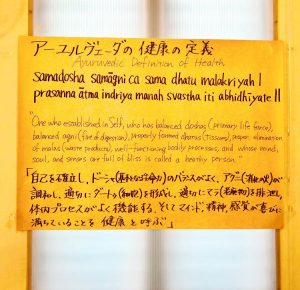 アーユルヴェーダの健康の定義
Ayuruvedic Definition of Health
samadosha samāgni ca sama dhatu malakriyah |
prasanna ātma indriya manah svastha iti abhidhīyate ||
"One who established in Self, who has balanced doshas (primary life force),
balanced agni (fire of digestion), properly formed dhatus (tissues), proper elimination
of malas (waste products), well-functioning bodily processes, and whose mind,
soul, and senses are full of bliss is called a healthy person."
「自己を確立し、ドーシャ(基本的な生命力)のバランスがよく、アグニ(消化の火)が
調和し、適切にダートゥ(組織)を形成し、適切にマラ(老廃物)を排泄し、
体内プロセスがよく機能する、そしてマインド、精神、感覚が喜びに
満ちていることを健康と呼ぶ」